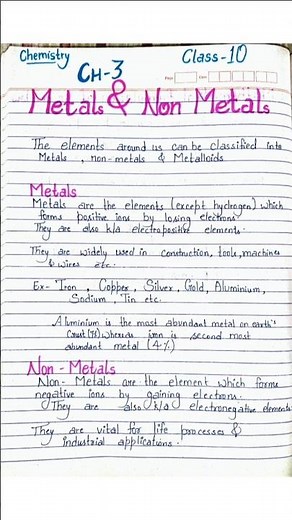 Chemistry
CH-3
Class-10
Metals & Non Metals
The elements around us can be classified into
Metals , non-metals & Metalloids
Metals
Metals are the elements (except hydrogen) which
forms positive ions by losing electrons
They are also k/a electropositive elements.
They are widely used in construction, tools, machines
& wires etc.
Ex- Iron , Copper , Silver , Gold, Aluminium,
Sodium , Tin etc.
Aluminium is the most abundant metal on earth's
crust (7%) whereas iron is second most
abundant metal (4%)
Non - Metals
Non- Metals are the element which forms
negative ions by gaining electrons.
They are also k/a electronegative elements
They are vital for life processes &
industrial applications.